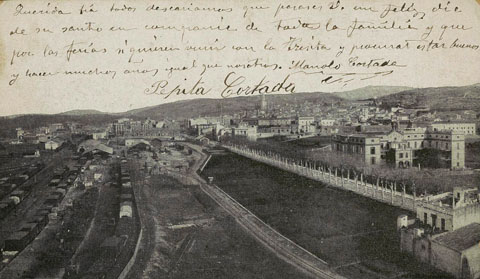 Querida tía todos desearíamos que pasase V. un feliz día
de su santo en compañía de toda la familia y que
por las ferias si quieren venir con la Pepita y procurar estar buenos
y hacer muchos años igual que nosotros. Manolo Cortada
Pepita Cortada